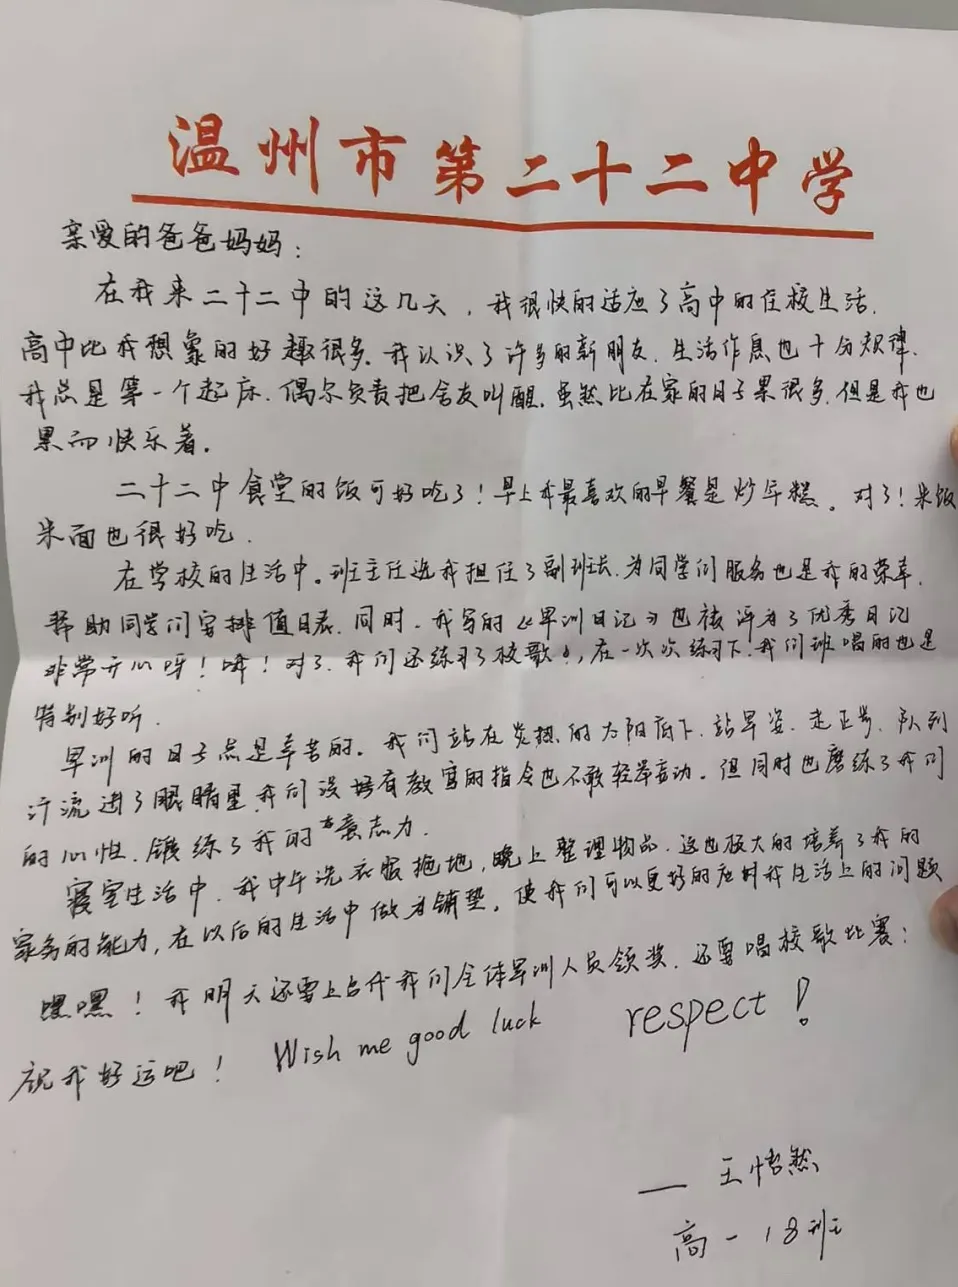 温州市第二十二中学
亲爱的爸爸妈妈：
在我来二十二中的这几天，我很快的适应了高中的住校生活.
高中比我想象的好趣很多.我认识了许多的新朋友.生活作息也十分规律.
我总是第一个起床.偶尔负责把舍友叫醒.虽然比在家的日子累很多.但是我也
累而快乐着。
二十二中食堂的饭可好吃了！早上我最喜欢的早餐是炒年糕。对了！米饭
米面也很好吃.
在学校的生活中。班主任选我担任了副班长.为同学们服务也是我的荣幸.
帮助同学们安排值日表.同时.我写的《军训日记》也被评为了优秀日记
非常开心呀！对了.我们还练习了校歌，在一次次练习下.我们班唱的也是
特别好听.
军训的日子总是辛苦的。我们站在炎热的太阳底下.站军姿.走正步.队列
汗流进了眼睛里.我们没有教官的指令也不敢轻举妄动。但同时也磨练了我们
的心性.锻练了我的意志力.
寝室生活中.我中午洗衣服拖地，晚上整理物品.这也极大的培养了我的
家务的能力，在以后的生活中做为铺垫。使我们可以更好的应对我生活上的问题
嘿嘿！我明天还要上台代我们全体军训人员领奖.还要唱校歌比赛：
祝我好运吧！ Wish me good luck respect！
— 王悟然
高一18班